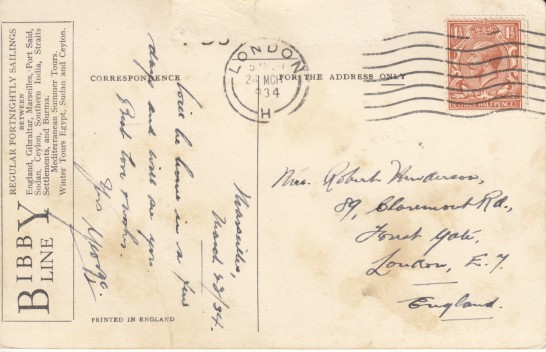 BIBBY LINE
REGULAR FORTNIGHTLY SAILINGS
BETWEEN
England, Gibraltar, Marseilles, Port Said,
Sudan, Ceylon, Southern India, Straits
Settlements, and Burma.
Mediterranean Summer Tours.
Winter Tours Egypt, Sudan and Ceylon.
CORRESPONDENCE
FOR THE ADDRESS ONLY
LONDON
24 MCH
1934
H
1½ 1½
THREE HALFPENCE
Marseilles,
March 23/34.
will be home in a few
days and will see you.
Best love
Yrs
Mrs. Robert Henderson,
89, Claremont Rd.,
Forest Gate,
London, E.7
England.
PRINTED IN ENGLAND